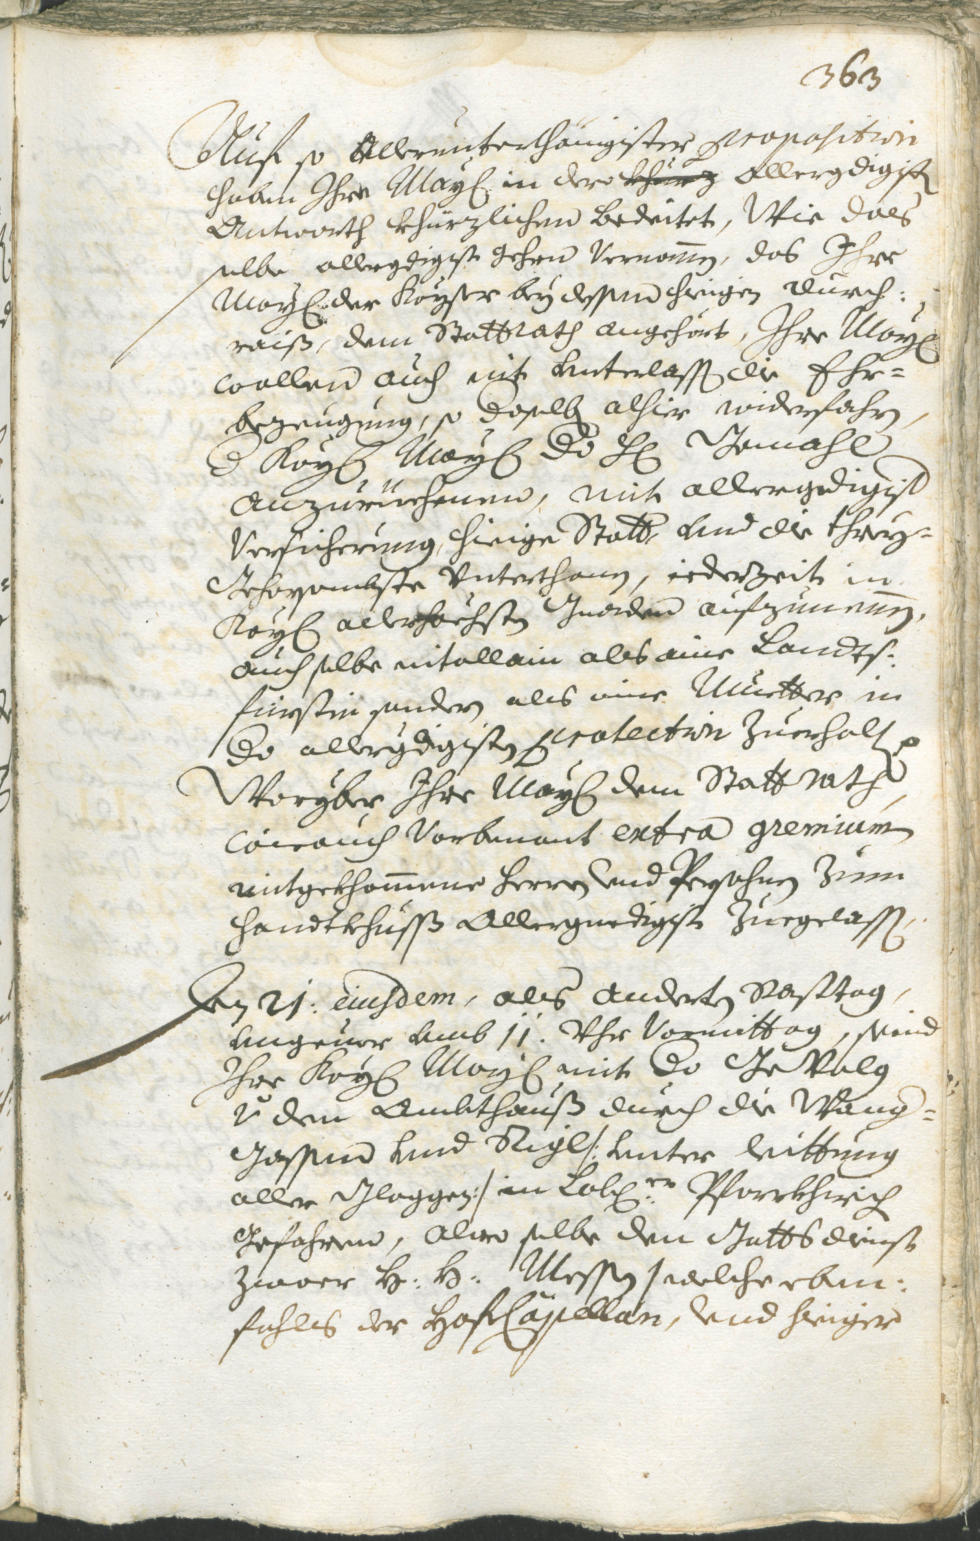 363
Auf so Allerunterthänigister proposition
haben Ihre Mayt: in dero khurz allergdigist
Antworth khürzlichen bedeitet, Wie dass
selbe allergdigist gehrn vernomen, das Ihre
Mayt: der Kayser bey dessen hieigen durch:
raiß, dem Stattrath angehört, Ihre Mayt:
wollen auch nit unterlassen die Ehr=
bezeugung, so daselbs alhier widerfahrn,
d Kayl: Mayt: do H: Gemahl
anzurüehmen, mit allergnedigist
Versicherung, hieige Statt, und die threy=
Gehorsambste Unterthanen, iederzeit in
Kayl: allerhöchsten Gnaden aufzunemen,
auch selbe nit allain als aine Landts:
fürstin sondern als aine Muetter in
do allergdigisten protection zuerhalten
Woryber Ihre Mayt: dem Statt rath,
wie auch Vorbenant extra gremium
mitgekhommene herrn und Persohnen zum
handtkhuss Allergnedigist zuegelassen.
Den 21: eiusdem, als anderten Rasttag,
ungeuer umb 11. Uhr Vormittag, seind
Ihre Kayl: Mayt: mit do Gevolg
v dem Ambthauß durch die Wang=
Gassen und Rigl /: unter leittung
aller Gloggen :/ in Lobl:er Pfarrkhirch
Gefahren, alwo selbe den Gottsdienst
zwaer H: H: Messen / welche eben:
fahls der HofCapellan, und hieiger